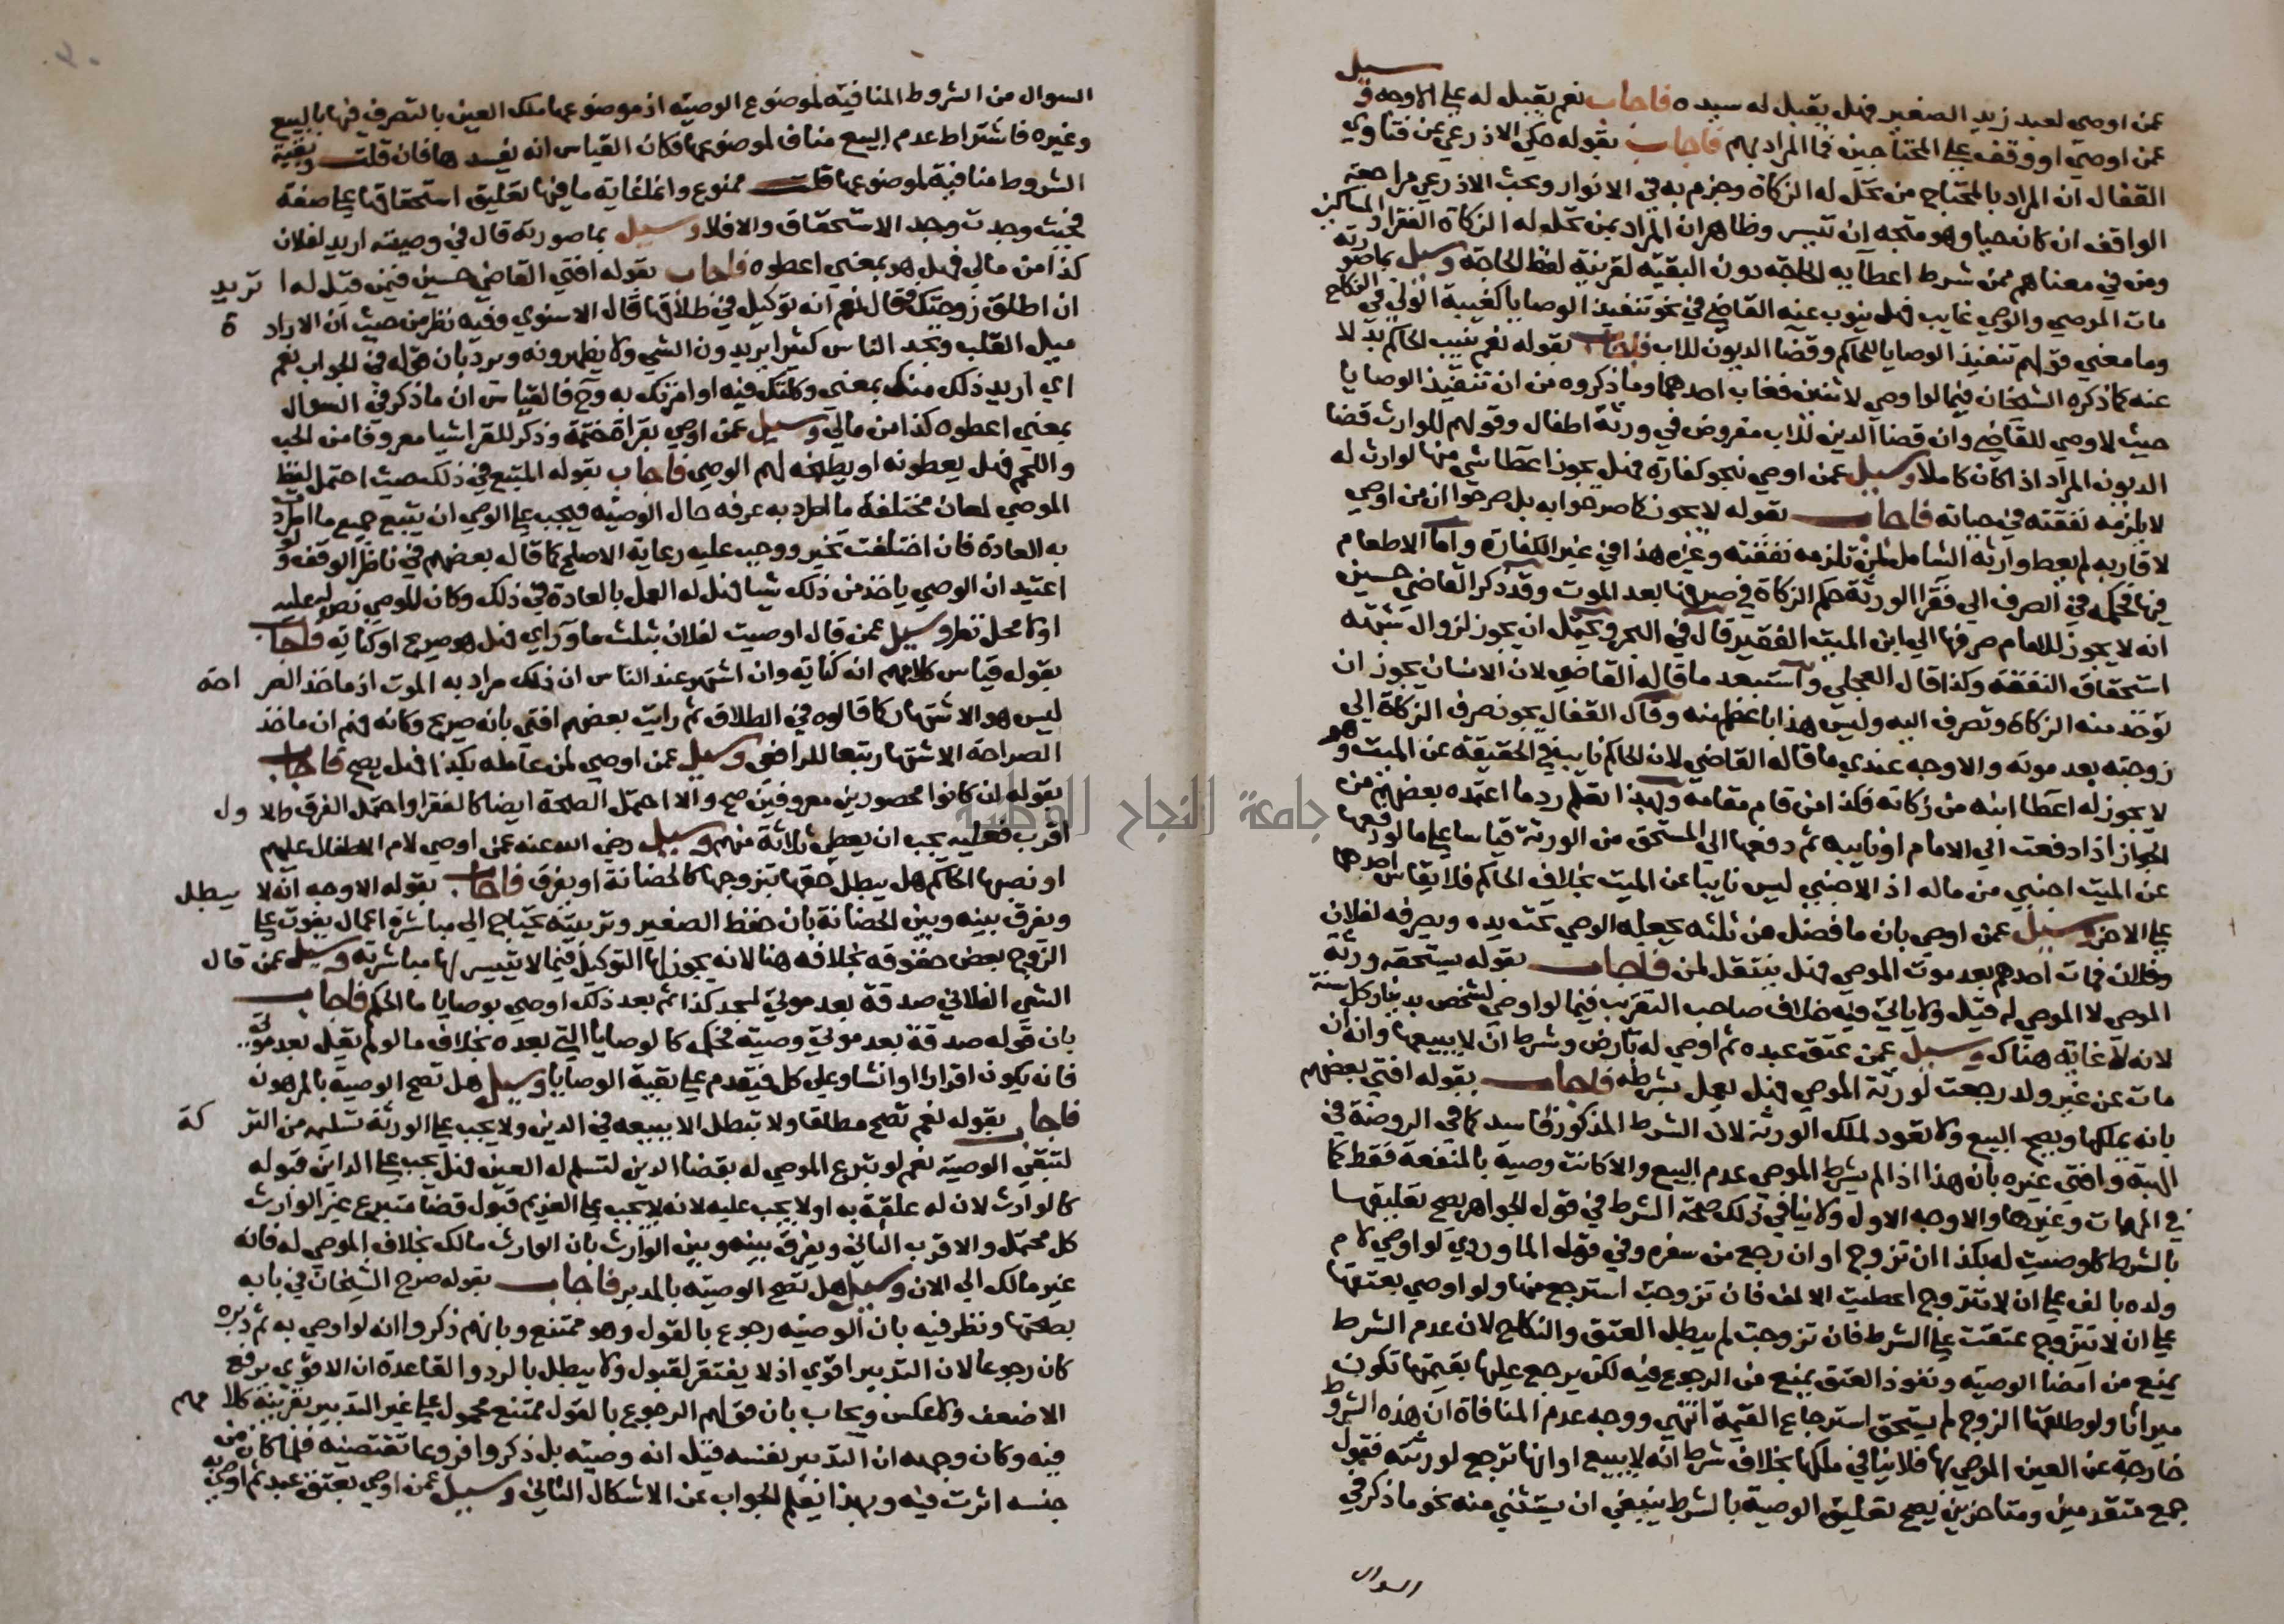 عمن اوصي لعبد زيد الصغير فهل يقبل له سيده فاجاب نعم يقبل له علي الاوجه وسيل
عمن اوصي او وقف علي المحتاجين فما المراد بهم فاجاب بقوله حكي الاذرعي عن فتاوي
القفال ان المراد بالمحتاج من تحل له الزكاة وجزم به في الانوار وبحث الاذرعي مراجعة
الواقف ان كان حيا وهو متجه ان تيسر وظاهر ان المراد بمن تحل له الزكاة الفقرا والمساكين
ومن في معناهم ممن شرط اعطايه الحاجة دون البقية لقرينة لفظ الحاجة وسيل بما صورته
مات الموصي والوصي غايب فهل ينوب عنه القاضي في نحو تنفيذ الوصايا كغيبة الولي في النكاح
وما معني قولهم تنفيذ الوصايا للحاكم وقضا الديون للاب فاجاب بقوله نعم ينيب الحاكم بدلا
عنه كما ذكره الشيخان فيما لو اوصي لاثنين فغاب احدهما وما ذكروه من ان تنفيذ الوصايا
حيث لا وصي للقاضي وان قضا الدين للاب مفروض في ورثة اطفال وقولهم للوارث قضا
الديون المراد اذا كان كاملا وسيل عمن اوصي بنحو كفارة فهل يجوز اعطا شي منها لوارث له
لا يلزمه نفقته في حياته فاجاب بقوله لا يجوز كما صرحوا به بل صرحوا ان من اوصي
لاقاربه لم يعط وارثه الشامل لمن تلزمه نفقته وغيره هذا في غير الكفارة واما الاطعام
فيها فحكمه في الصرف الي فقرا الورثة حكم الزكاة في صرفها بعد الموت وقد ذكر القاضي حسين
انه لا يجوز للامام صرفها الي ابن الميت الفقير قال في البحر ويحتمل ان يجوز لزوال شبهة
استحقاق النفقة وكذا قال العجلي واستبعد ما قاله القاضي لان الانسان يجوز ان
توخذ منه الزكاة وتصرف اليه وليس هذا باعظم منه وقال القفال يجوز صرف الزكاة الي
زوجته بعد موته والاوجه عندي ما قاله القاضي لان الحاكم نايب في الحقيقة عن الميت وهو
لا يجوز له اعطا ابنه من زكاته فكذا من قام مقامه وبهذا تعلم رد ما اعتمده بعضهم من
الجواز اذا دفعت الي الامام او نايبه ثم دفعها الي المستحق من الورثة قياسا علي ما لو دفعها
عن الميت اجنبي من ماله اذ الاجنبي ليس نايبا عن الميت بخلاف الحاكم فلا يقاس احدهما
علي الاخر وسيل عمن اوصي بان ما فضل من ثلثه يجعله الوصي تحت يده ويصرفه لفلان
وفلان فمات احدهم بعد موت الموصي فهل ينتقل لمن فاجاب بقوله يستحقه ورثة
الموصي لا الموصي له قيل ولا ياتي فيه خلاف صاحب التقريب فيما لو اوصي لشخص بدينار كل سنة
لانه لا غاية هناك وسيل عمن عتق عبده ثم اوصي له بارض وشرط ان لا يبيعها وانه ان
مات عن غير ولد رجعت لورثة الموصي فهل يعمل بشرطه فاجاب بقوله افتي بعضهم
بانه يملكها ويصح البيع ولا تعود لملك الورثة لان الشرط المذكور فاسد كما في الروضة في
الهبة وافتي غيره بان هذا اذا لم يشرط الموصي عدم البيع والا كانت وصية بالمنفعة فقط كما
في المهمات وغيرها والاوجه الاول ولا ينافي ذلك صحة الشرط في قول الجواهر يصح تعليقها
بالشرط كاوصيت له بكذا ان تزوج او ان رجع من سفره وفي قول الماوردي لو اوصي لام
ولده بالف علي ان لا تتزوج اعطيت الالف فان تزوجت استرجع منها ولو اوصي بعتقها
علي ان لا تتزوج عتقت علي الشرط فان تزوجت لم يبطل العتق والنكاح لان عدم الشرط
يمنع من امضا الوصية ونفوذ العتق يمنع من الرجوع فيه لكن يرجع عليها بقيمتها تكون
ميراثا ولو طلقها الزوج لم يستحق استرجاع القيمة انتهي ووجه عدم المنافاة ان هذه الشروط
خارجة عن العين الموصي بها فلا ينافي ملكها بخلاف شرط انه لا يبيع او انها ترجع لورثته فقول
جمع متقدمين ومتاخرين يصح تعليق الوصية بالشرط ينبغي ان يستثني منه نحو ما ذكر في
السوال
السوال من الشروط المنافية لموضوع الوصية اذ موضوعها ملك العين بالتصرف فيها بالبيع
وغيره فاشتراط عدم البيع مناف لموضوعها فكان القياس انه يفسدها فان قلت وبقية
الشروط منافية لموضوعها قلت ممنوع وانما غاية ما فيها تعليق استحقاقها علي صفة
فحيث وجدت وجد الاستحقاق والا فلا وسيل بما صورته قال في وصيته اريد لفلان
كذا من مالي فهل هو بمعني اعطوه فاجاب بقوله افتي القاضي حسين فيمن قيل له اتريد
ان اطلق زوجتك فقال نعم انه توكيل في طلاقها قال الاسنوي وفيه نظر من حيث ان الارادة
ميل القلب ونجد الناس كثيرا يريدون الشي ولا يظهرونه ويرد بان قوله في الجواب نعم
اي اريد ذلك منك بمعني وكلتك فيه او امرتك به وح فالقياس ان ما ذكر في السوال
بمعني اعطوه كذا من مالي وسيل عمن اوصي بقراة ختمة وذكر للقرا شيا معروفا من الحب
واللحم فهل يعطونه او يطبخه لهم الوصي فاجاب بقوله المتبع في ذلك حيث احتمل لفظ
الموصي لمعان مختلفة ما اطرد به عرفه حال الوصية فيجب علي الوصي ان يتبع جميع ما اطردت
به العادة فان اختلفت تخير ووجب عليه رعاية الاصلح كما قال بعضهم في ناظر الوقف ولو
اعتيد ان الوصي ياخذ من ذلك شيا فهل له العمل بالعادة في ذلك وكان الموصي نص له عليه
اولا محل نظر وسيل عمن قال اوصيت لفلان بثلث ما وراي فهل هو صريح او كناية فاجاب
بقوله قياس كلامهم انه كناية وان اشتهر عند الناس ان ذلك مراد به الموت اذ ماخذ الصراحة
ليس هو الاشتهار كما قالوه في الطلاق ثم رايت بعضهم افتي بانه صريح وكانه فهم ان ماخذ
الصراحة الاشتهار تبعا للرافعي وسيل عمن اوصي لمن عامله بكذا فهل يصح فاجاب
بقوله ان كانوا محصورين معروفين صح والا احتمل الصحة ايضا كالفقرا واحتمل الفرق والاول
اقرب فعليه يجب ان يعطي ثلاثة منهم وسيل رضي الله عنه عمن اوصي لام الاطفال عليهم
او نصبها الحاكم هل يبطل حقها بتزوجها كالحضانة او يفرق فاجاب بقوله الاوجه انه لا يبطل
ويفرق بينه وبين الحضانة بان حفظ الصغير وتربيته يحتاج الي مباشرة اعمال يفوت علي
الزوج بعض حقوقه بخلافه هنا لانه يجوز لها التوكيل فيما لا تتيسر لها مباشرته وسيل عمن قال
الشي الفلاني صدقة بعد موتي لمسجد كذا ثم بعد ذلك اوصي بوصايا ما الحكم فاجاب
بان قوله صدقة بعد موتي وصية فحكمه كالوصايا التي بعده بخلاف ما لو لم يقل بعد موتي
فانه يكون اقرارا او انشا وعلي كل فيقدم علي بقية الوصايا وسيل هل تصح الوصية بالمرهون
فاجاب بقوله نعم تصح مطلقا ولا تبطل الا ببيعه في الدين ولا يجب علي الورثة تسليمه من التركة
لتبقي الوصية نعم لو تبرع الموصي له بقضا الدين لتسلم له العين فهل يجب علي الداين قبوله
كالوارث لان له علقة به او لا يجب عليه لانه لا يجب علي الغريم قبول قضا متبرع غير الوارث
كل محتمل والاقرب الثاني ويفرق بينه وبين الوارث بان الوارث مالك بخلاف الموصي له فانه
غير مالك الي الان وسيل هل تصح الوصية بالمدبر فاجاب بقوله صرح الشيخان في بابه
بصحتها ونظر فيه بان الوصية رجوع بالقول وهو ممتنع وبانهم ذكروا انه لو اوصي به ثم دبره
كان رجوعا لان التدبير اقوي اذ لا يفتقر لقبول ولا يبطل بالرد والقاعدة ان الاقوي يرفع
الاضعف ولا عكس ويجاب بان قولهم الرجوع بالقول ممتنع محمول علي غير التدبير بقرينة كلامهم
فيه وكان وجهه ان التدبير نفسه قيل انه وصية بل ذكروا فروعا تقتضيه فلما كان من
جنسه اثرت فيه وبهذا يعلم الجواب عن الاشكال الثاني وسيل عمن اوصي بعتق عبد ثم اوصي به
جامعة النجاح الوطنية